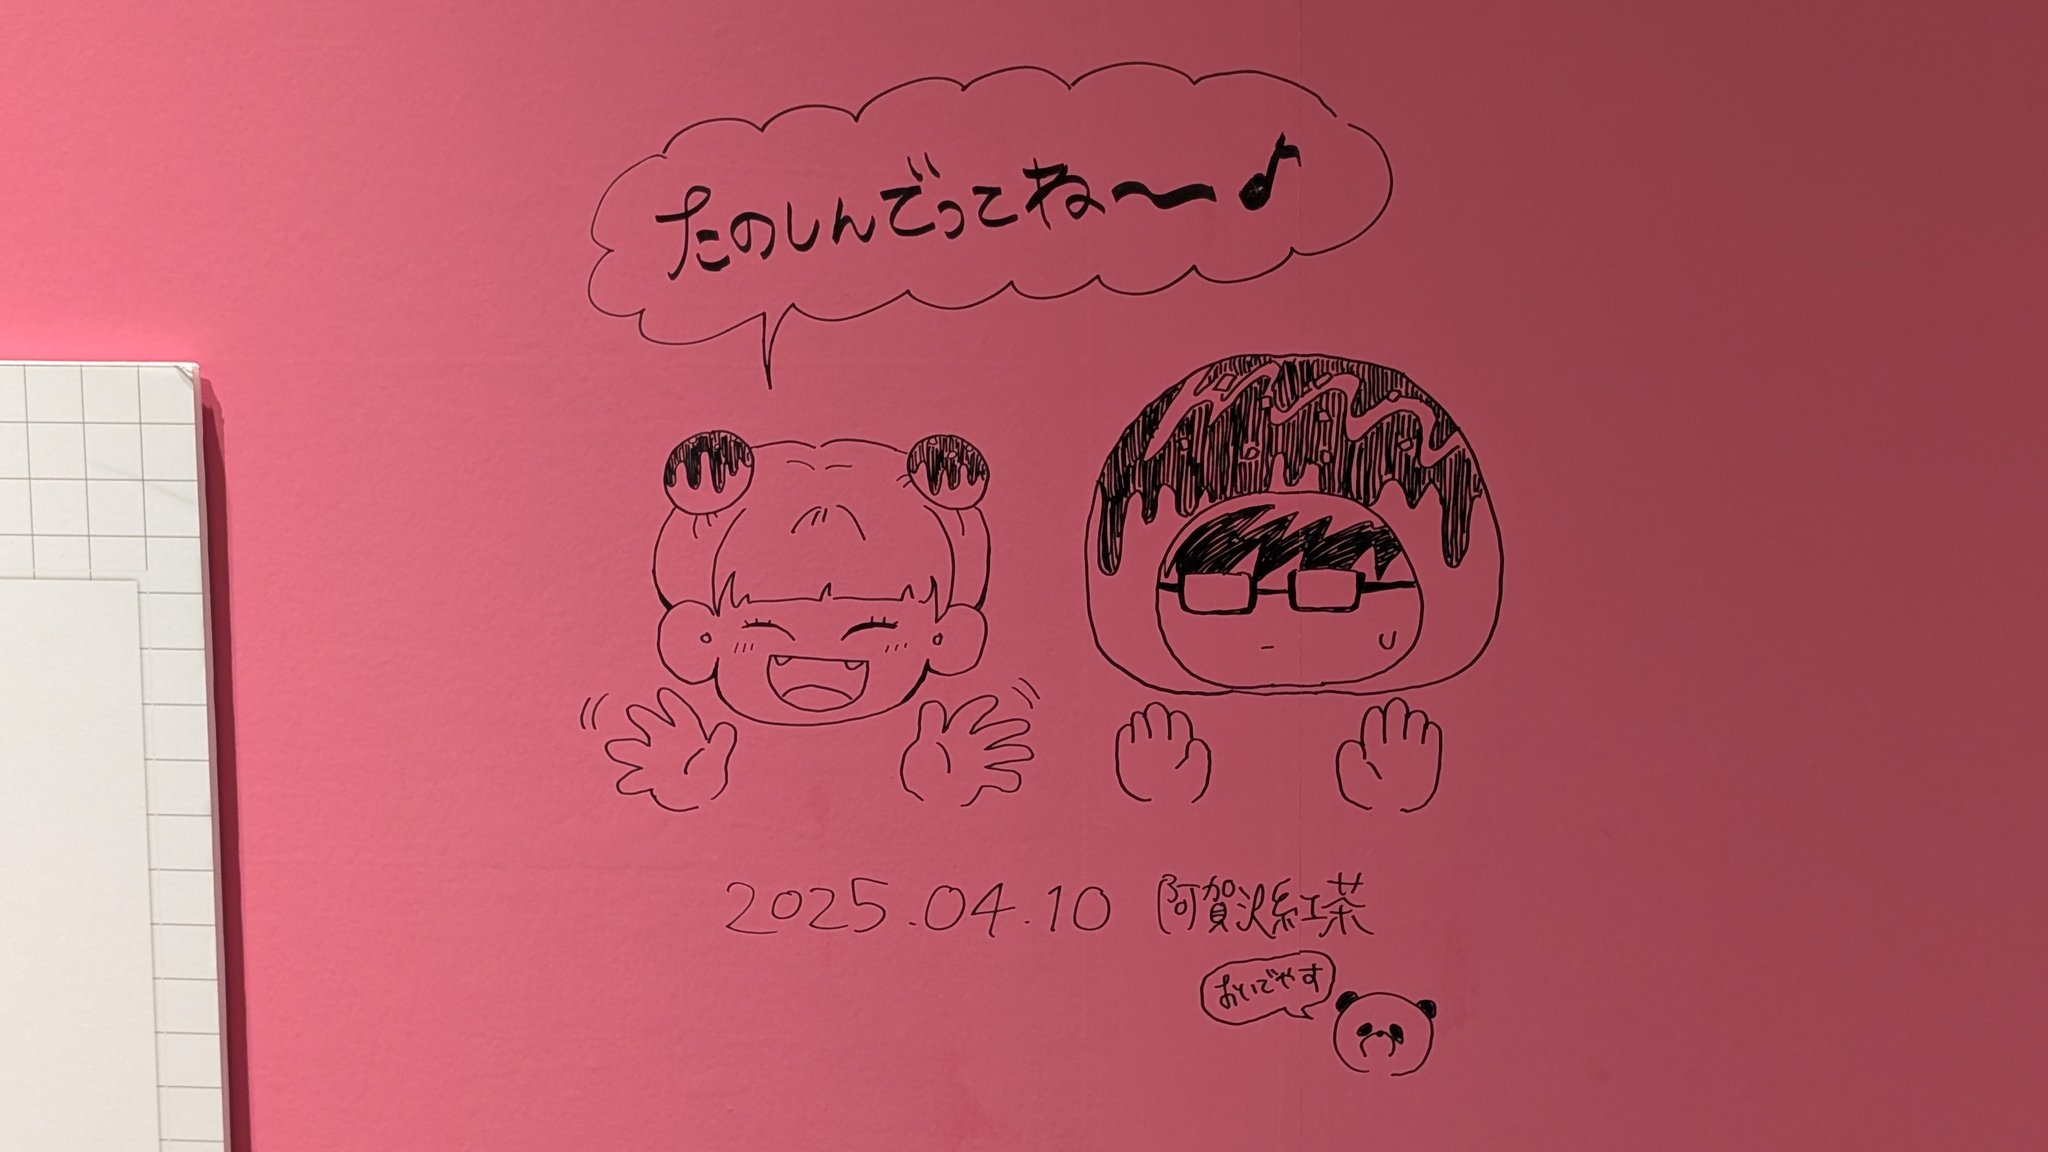 たのしんでってね～♪
2025.04.10 阿賀沢紅茶
おいでやす